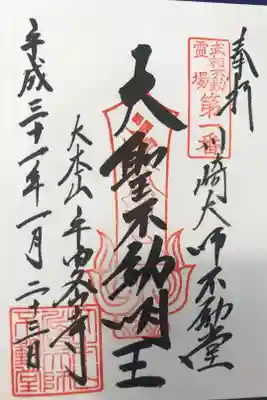 奉拝
武相不動尊
霊場
第一番
川崎大師不動堂
大聖不動明王
大本山平間寺
平成三十一年一月二十三日